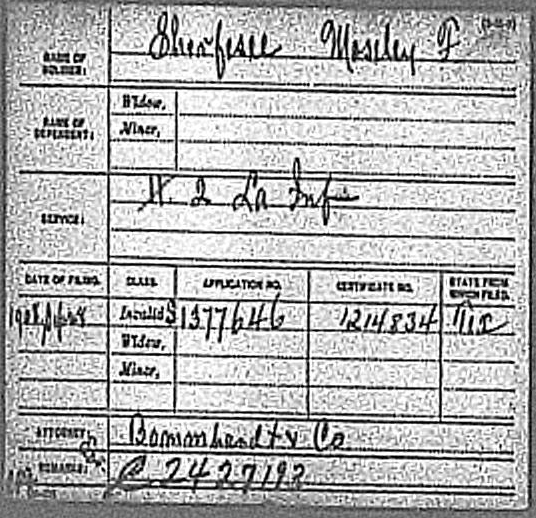 NAME OF SOLDIER: Moseley F
NAME OF DEPENDENT: Widow,
Minor,
SERVICE: 2 La Inf
DATE OF FILING. CLASS. APPLICATION NO. CERTIFICATE NO. STATE FROM WHICH FILED.
Invalid S 1377646 1214834
Widow,
Minor,
ATTORNEY: Co
REMARKS: C 2427192